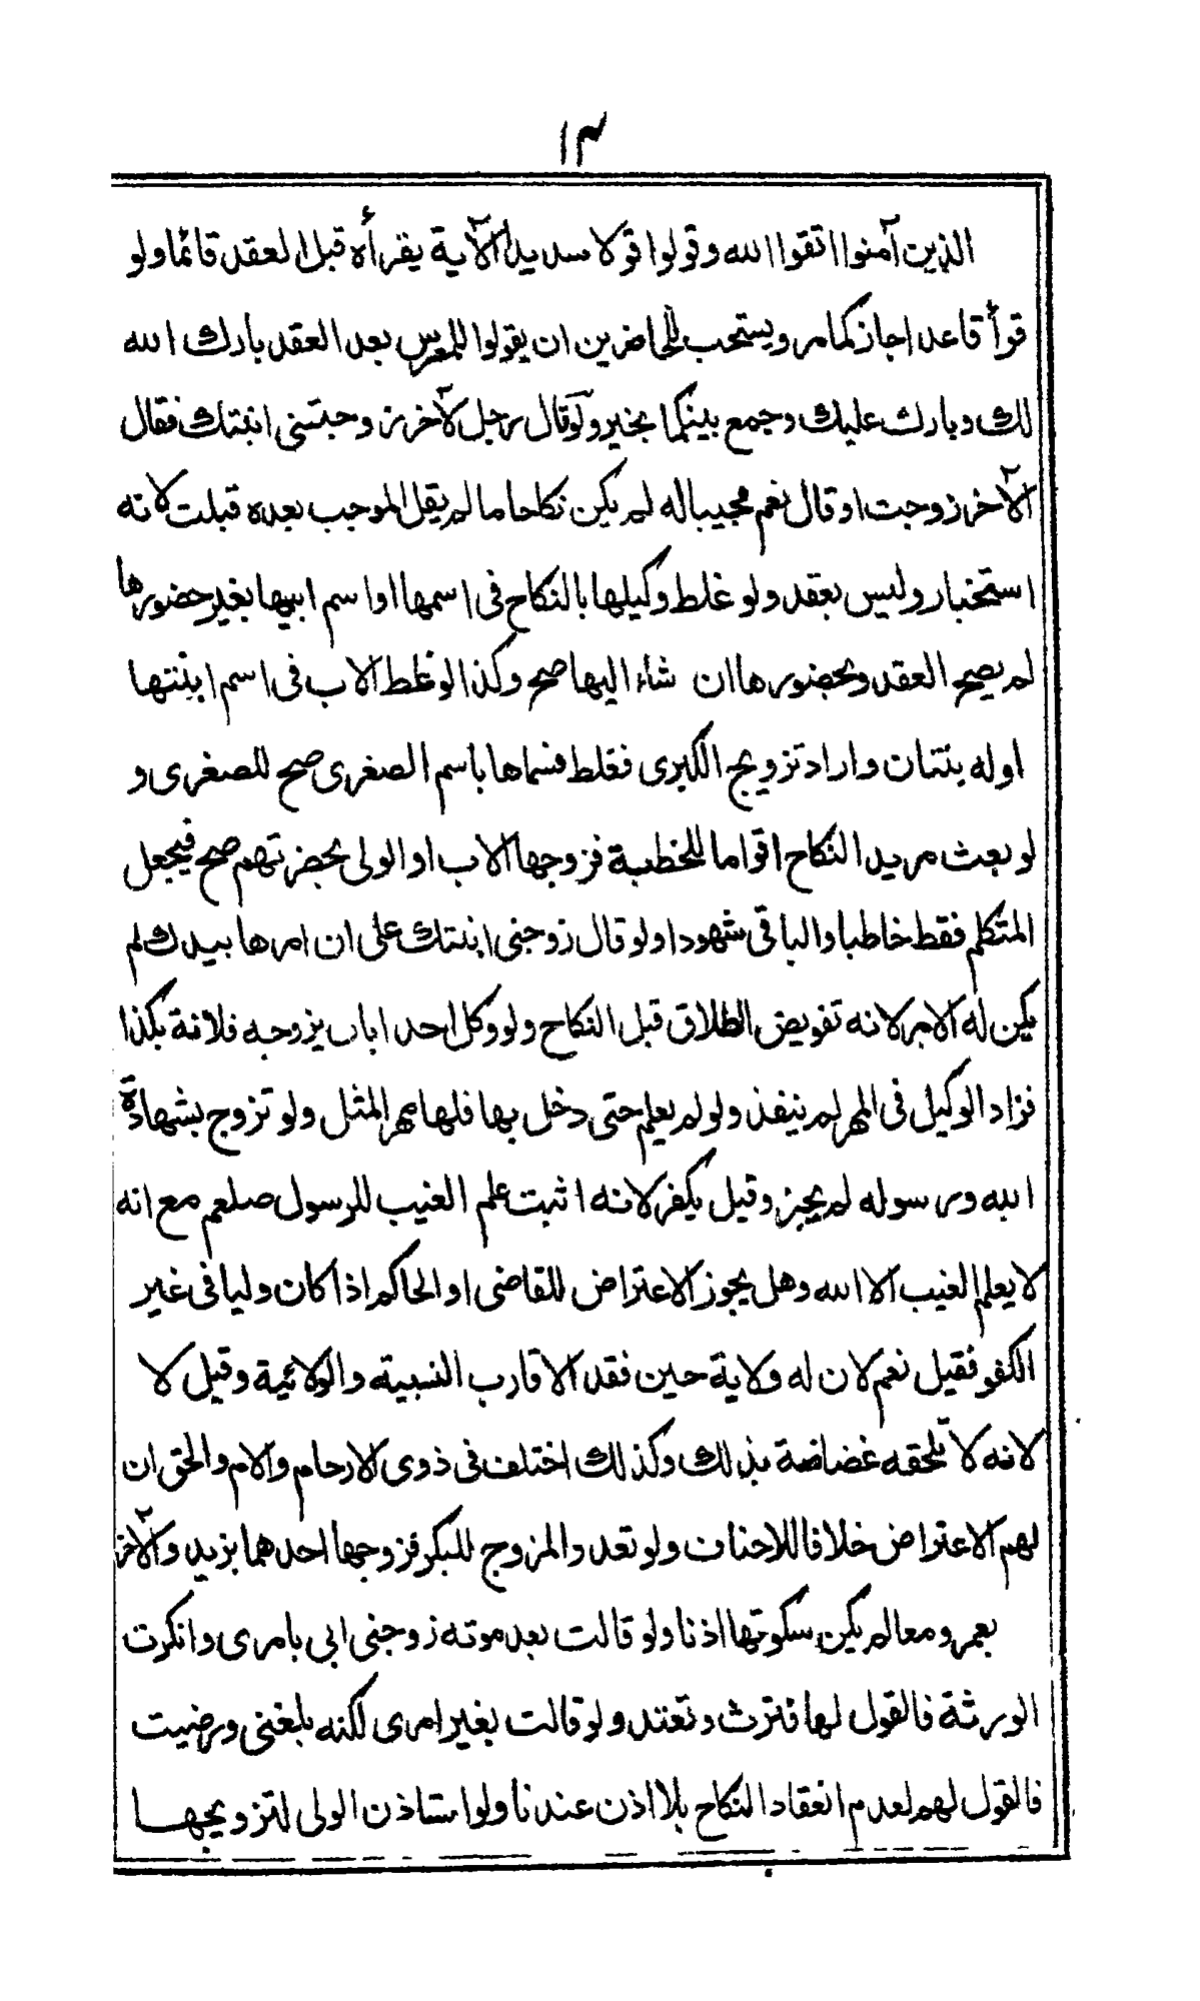 ١٣
الذين آمنوا اتقوا الله وقولوا قولا سديدا الآية يقرأه قبل العقد قائما ولو
قرأ قاعدا جاز كما مر ويستحب للحاضرين ان يقولوا للمعرس بعد العقد بارك الله
لك وبارك عليك وجمع بينكما بخير ولو قال رجل لآخر زوجتنى ابنتك فقال
الآخر زوجت او قال نعم مجيبا له لم يكن نكاحا ما لم يقل الموجب بعده قبلت لانه
استخبار وليس بعقد ولو غلط وكيلها بالنكاح فى اسمها او اسم ابيها بغير حضورها
لم يصح العقد وبحضورها ان شاء اليها صح وكذا لو غلط الاب فى اسم ابنتها
او له بنتان واراد تزويج الكبرى فغلط فسماها باسم الصغرى صح للصغرى و
لو بعث مريد النكاح اقواما للخطبة فزوجها الاب او الولى بحضرتهم صح فيجعل
المتكلم فقط خاطبا والباقى شهودا ولو قال زوجنى ابنتك على ان امرها بيدك لم
يكن له الامر لانه تفويض الطلاق قبل النكاح ولو وكل احدا بان يزوجه فلانة بكذا
فزاد الوكيل فى المهر لم ينفذ ولو لم يعلم حتى دخل بها فلها مهر المثل ولو تزوج بشهادة
الله ورسوله لم يجز وقيل يكفر لانه اثبت علم الغيب للرسول صلعم مع انه
لا يعلم الغيب الا الله وهل يجوز الاعتراض للقاضى او الحاكم اذا كان وليا فى غير
الكفو فقيل نعم لان له ولاية حين فقد الاقارب النسبية والولائية وقيل لا
لانه لا تلحقه غضاضة بذلك وكذلك اختلف فى ذوى الارحام والام والحق ان
لهم الاعتراض خلافا للاحناف ولو تعدد المزوج للبكر فزوجها احدهما بزيد والآخر
بعمرو معا لم يكن سكوتها اذنا ولو قالت بعد موته زوجنى ابى بامرى وانكرت
الورثة فالقول لها فترث وتعتد ولو قالت بغير امرى لكنه بلغنى ورضيت
فالقول لهم لعدم انعقاد النكاح بلا اذن عندنا ولو استاذن الولى لتزويجها